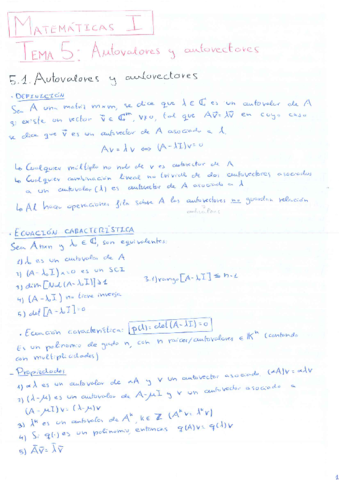 MATEMÁTICAS I
TEMA 5: Autovalores y autovectores
5.1. Autovalores y autovectores
· DEFINICIÓN
Sea A una matriz mxm, se dice que λ ∈ ℂ es un autovalor de A
si existe un vector v̄ ∈ ℂᵐ, v≠0, tal que Av̄ = λv̄ en cuyo caso
se dice que v̄ es un autovector de A asociado a λ
Av = λv ⇔ (A-λI)v=0
↳ Cualquier múltiplo no nulo de v es autovector de A
↳ Cualquier combinación lineal no trivial de dos autovectores asociados
a un autovalor (λ) es autovector de A asociado a λ
↳ Al hacer operaciones fila sobre A los autovectores no guardan relación
· ECUACIÓN CARACTERÍSTICA
Sea Anxn y λ ∈ ℂ, son equivalentes:
1) λ es un autovalor de A
2) (A-λI)x=0 es un SCI
3) dim[Nul(A-λI)]≥1 3.1) rango[A-λI] ≤ n-1
4) (A-λI) no tiene inversa
5) det[A-λI]=0
· Ecuación característica: p(λ)=det(A-λI)=0
Es un polinomio de grado n, con n raíces/autovalores (contando
con multiplicidades)
· Propiedades
1) αλ es un autovalor de αA y v un autovector asociado (αA)v=αλv
2) (λ-μ) es un autovalor de A-μI y v un autovector asociado a
(A-μI)v=(λ-μ)v
3) λᵏ es un autovalor de Aᵏ, k∈ℤ (Aᵏv=λᵏv)
4) Si q(·) es un polinomio, entonces q(A)v=q(λ)v
5) Āv̄=λ̄v̄
1